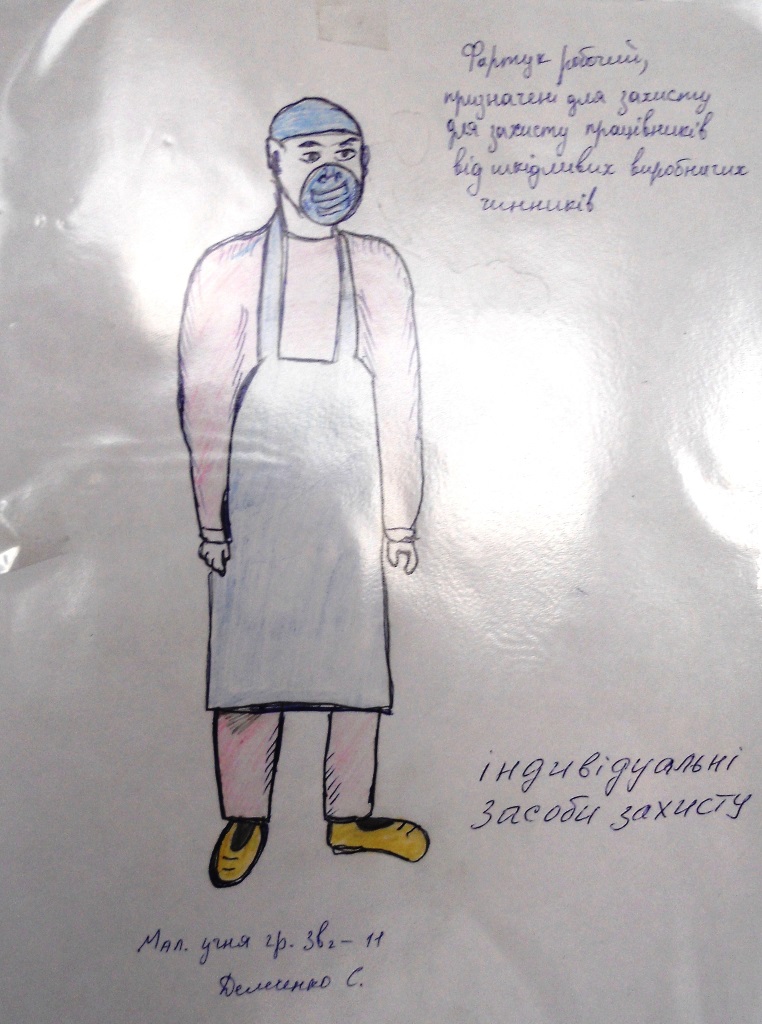 Фартук робочий,
призначені для захисту
для захисту працівників
від шкідливих виробничих
чинників
індивідуальні
засоби захисту
Мал. учня гр. Звг-11
С.